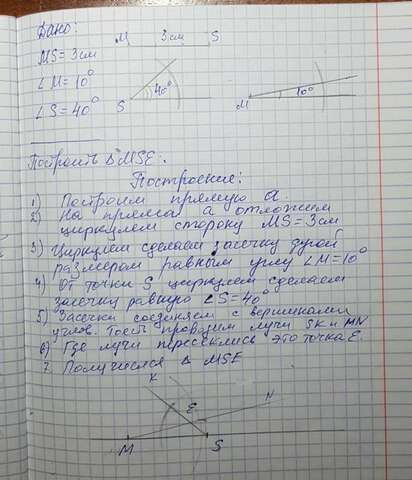 Дано:
M 3см S
MS = 3см
∠M = 10°
∠S = 40°
S 40°
M 10°
Построить ΔMSE.
Построение:
1) Построим прямую a
2) На прямой a отложим
циркулем сторону MS = 3см
3) Циркулем сделаем засечку дугой
размером равным углу ∠M = 10°
4) От точки S циркулем сделаем
засечку равную ∠S = 40°
5) Засечки соединяем с вершинами
углов. Тоесть проводим лучи SK и MN
6) Где лучи пересеклись это точка E.
7. Получился Δ MSE
K E N
M S